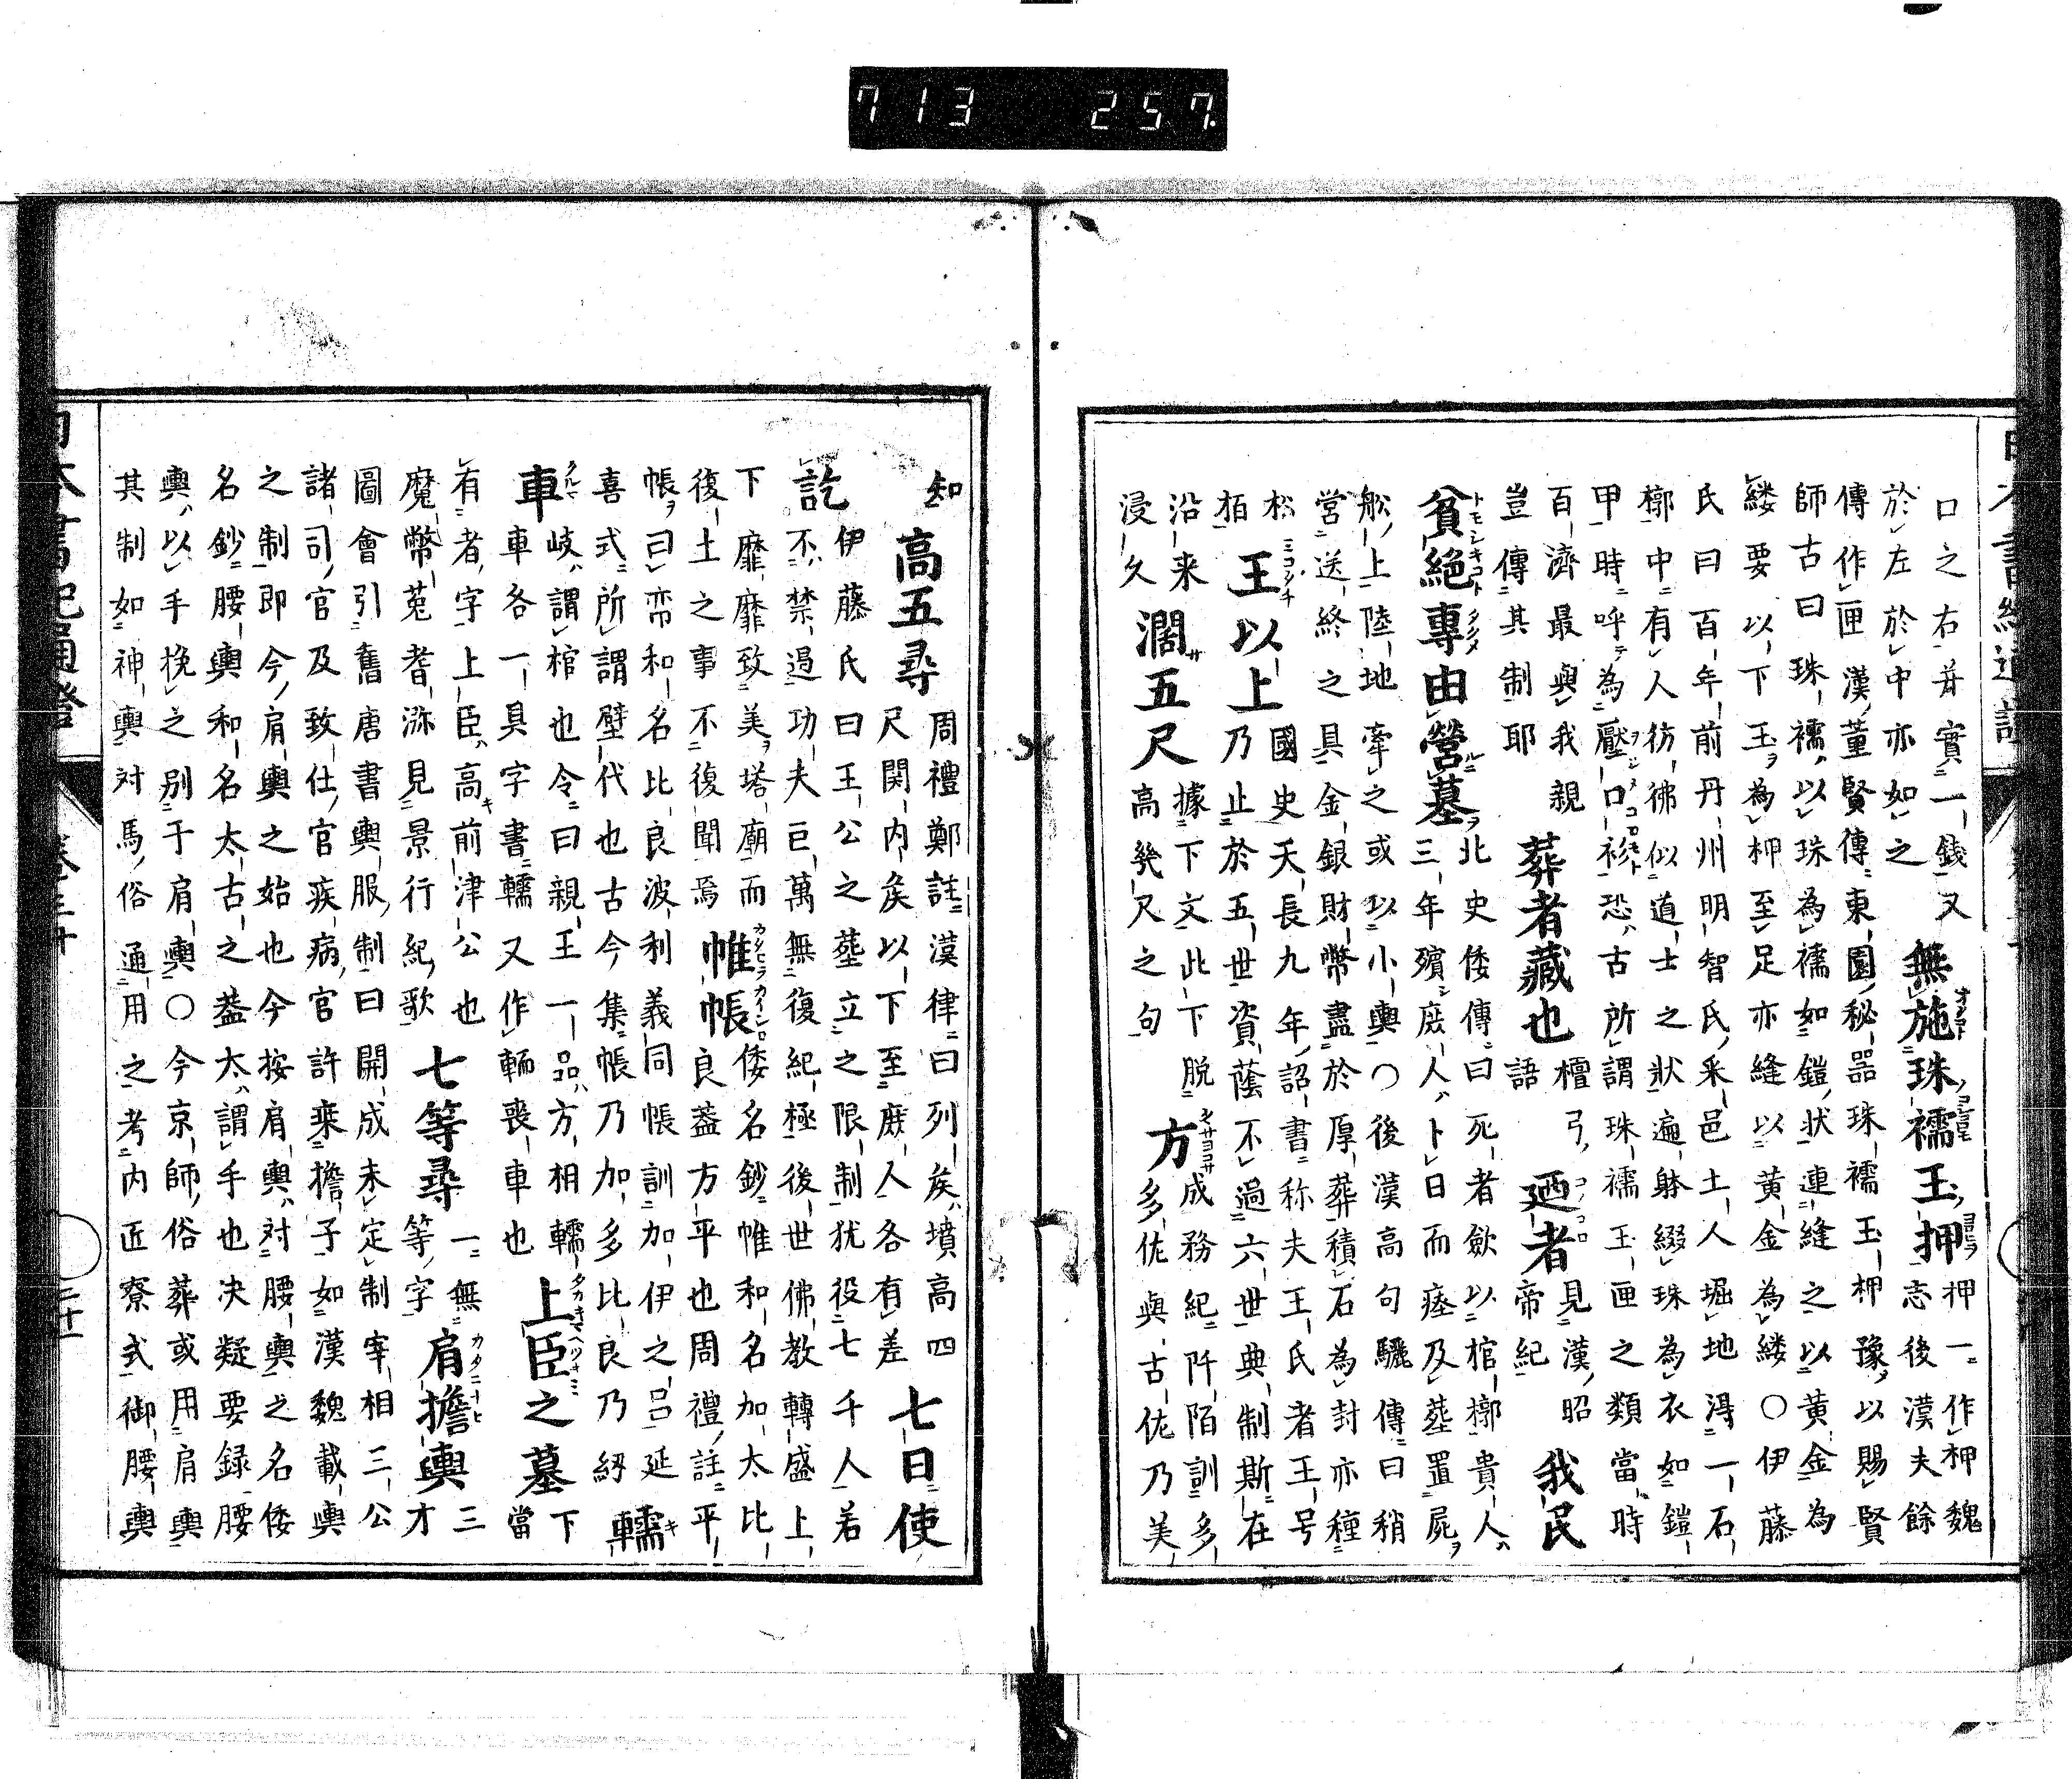 口之右并實一錢又
於左於中亦如之
無施珠襦玉押
押一作柙魏
志後漢夫餘
傳作匣漢董賢傳東園秘器珠襦玉柙豫以賜賢
師古曰珠襦以珠為襦如鎧状連縫之以黃金為
縷要以下玉為柙至足亦縫以黃金為縷〇伊藤
氏曰百年前丹州明智氏采邑土人堀地淂一石
槨中有人彷彿似道士之狀遍躰綴珠為衣如鎧
甲時呼為壓口袗恐古所謂珠襦玉匣之類當時
百濟最與我親
豈傳其制耶
葬者藏也
檀弓
語
廼者
見漢昭
帝紀
我民
貧絶專由營墓
北史倭傳曰死者歛以棺槨貴人
三年殯庶人卜日而瘞及葬置屍
舩上陸地牽之或以小輿〇後漢高句驪傳曰稍
営送終之具金銀財幣盡於厚葬積石為封亦種
松
栢
王以上
國史天長九年詔書称夫王氏者王号
乃止於五世資蔭不過六世典制斯在
沿来
浸久
濶五尺
據下文此下脱
高幾尺之句
方
成務紀阡陌訓多
多佐與古佐乃美
知
高五尋
周禮鄭註漢律曰列矦墳高四
尺関内矦以下至庶人各有差
七日使
訖
伊藤氏曰王公之葬立之限制犹役七千人若
不禁過功夫巨萬無復紀極後世佛教轉盛上
下靡靡致美塔廟而
復土之事不復聞焉
帷帳
倭名鈔帷和名加太比
良葢方平也周禮註平
帳曰帟和名比良波利義同帳訓加伊之呂延
喜式所謂壁代也古今集帳乃加多比良乃
轜
車
岐謂棺也令曰親王一品方相轜
車各一具字書轜又作輀喪車也
上臣之墓
下
當
有者字上臣高前津公也
魔幣菟耆瀰見景行紀歌
七等尋
一無
等字
肩擔輿
三
才
圖會引舊唐書輿服制曰開成末定制宰相三公
諸司官及致仕官疾病官許乗擔子如漢魏載輿
之制即今肩輿之始也今按肩輿対腰輿之名倭
名鈔腰輿和名太古之葢太謂手也决疑要録腰
輿以手挽之别于肩輿〇今京師俗葬或用肩輿
其制如神輿対馬俗通用之考内匠寮式御腰輿
713 257